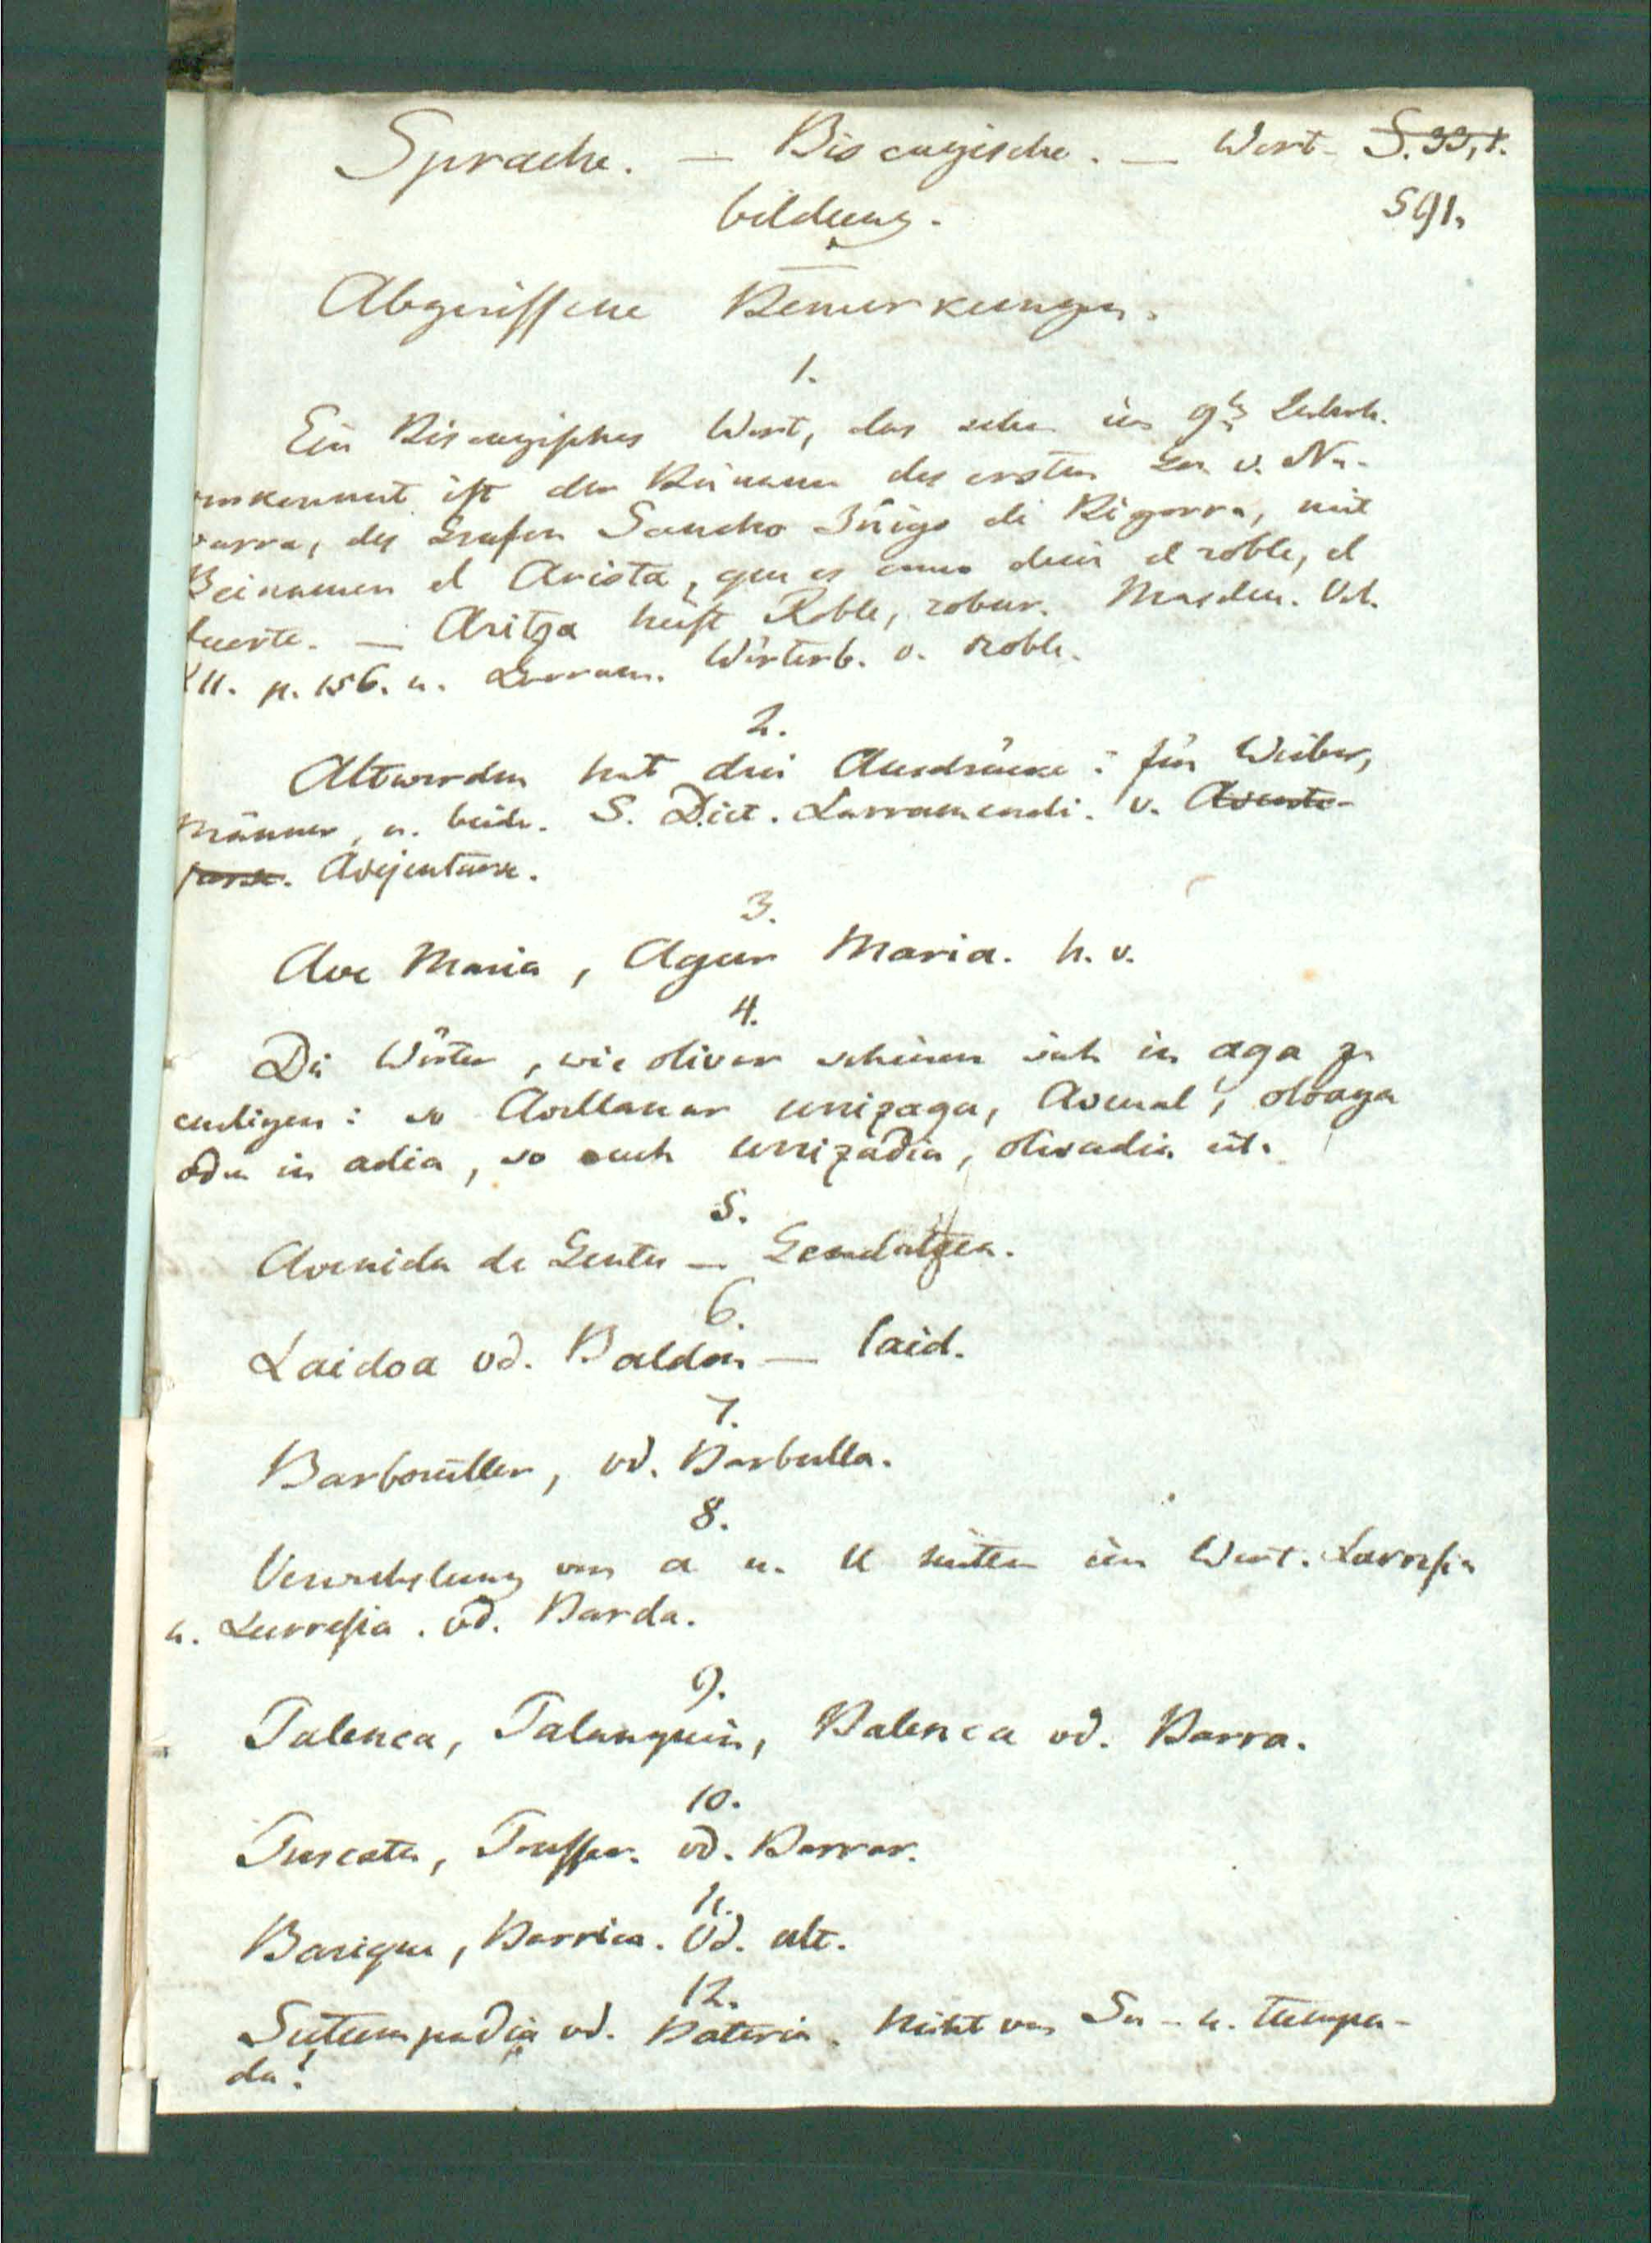 Sprache. — Biscayische. — Wort- S. 33, 1.
bildung. 591.
Abgerissene Bemerkungen.
1.
Ein Biscayisches Wort, das schon im 9t Jahrh.
vorkommt ist der Beiname des ersten v. Na-
varra, des Grafen Sancho Iñigo de Bigorra, mit
Beinamen el Arista, que es como decir el roble, el
fuerte. — Aritza heist Roble, robur. Masdeu. Vol.
XII. p. 156. u. Larram. Wörterb. v. roble.
2.
Altwerden hat drei Ausdrücke: für Weiber,
Männer, u. beide. S. Dict. Larramendi. v.
Avejentarse.
3.
Ave Maria, Agur Maria. h. v.
4.
Die Wörter, wie olivar scheinen sich in aga zu
endigen: so Avellanar urrizaga, Avenal, oloaga
oder in adia, so auch urrizadia, olivadia etc.
5.
Avenida de Gentes —
6.
Laidoa vd. Baldon — laid.
7.
Barbouiller, vd. Barbulla.
8.
Verwechslung von a u. u mitten im Wort. Larresia
u. Lurresia. vd. Barda.
9.
Talenca, Talanquin, Palenca vd. Barra.
10.
Truscatu, vd. Barrar.
11.
Barique, Barrica. Vd. alt.
12.
Sutumpadia vd. Bateria. Nicht von Su - u. tumpa-
da?